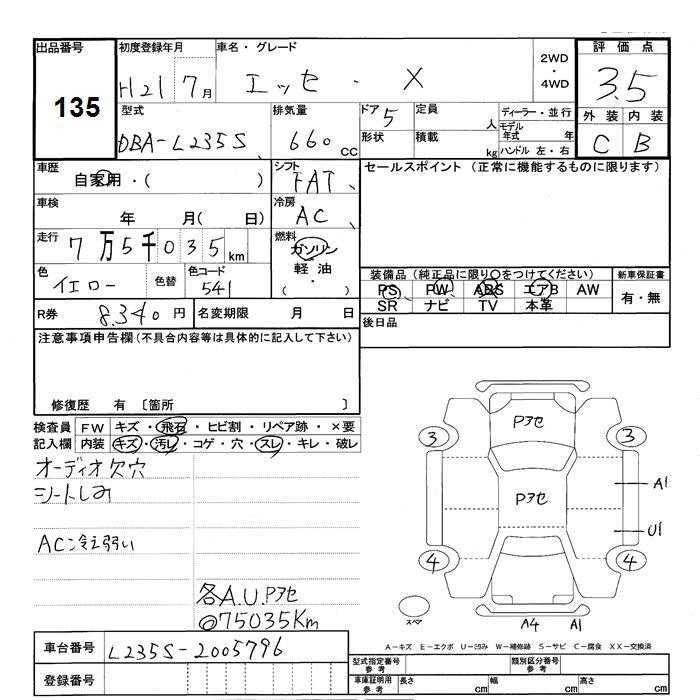 出品番号 初度登録年月 車名・グレード 2WD ・ 4WD 評価点
135 H21 7月 エッセ ・ X 3.5
外装 内装
C B
型式 排気量 ドア 定員 ディーラー・並行
DBA-L235S 660 CC 5 人 モデル年式 年
形状 積載 kg ハンドル 左・右
車歴 シフト セールスポイント (正常に機能するものに限ります)
自家用・( ) FAT
車検 冷房
年 月( 日) AC
走行 燃料
7万5千035km ガソリン
軽油
( ・ )
色 色替 色コード 装備品 (純正品に限り○をつけてください) 新車保証書
イエロー 541 PS PW ABS エアB AW 有・無
SR ナビ TV 本革
R券 8.340円 名変期限 月 日 後日品
注意事項申告欄(不具合内容等は具体的に記入して下さい)
修復歴 有 〔箇所 〕
検査員 FW キズ・飛石・ヒビ割・リペア跡・×要
記入欄 内装 キズ・汚レ・コゲ・穴・スレ・キレ・破レ
オーディオ欠穴
シートしみ
AC冷え弱い
各A.U.Pアセ
@75035Km
Pアセ
3 3
Pアセ
A1
U1
4 4
スペア A4 A1
車台番号 L235S-2005796
A－キズ E－エクボ U－凹み W－補修跡 S－サビ C－腐食 XX－交換済
登録番号
型式指定番号 参考 類別区分番号 参考
車庫証明用 参考 長さ cm 幅 cm 高さ cm